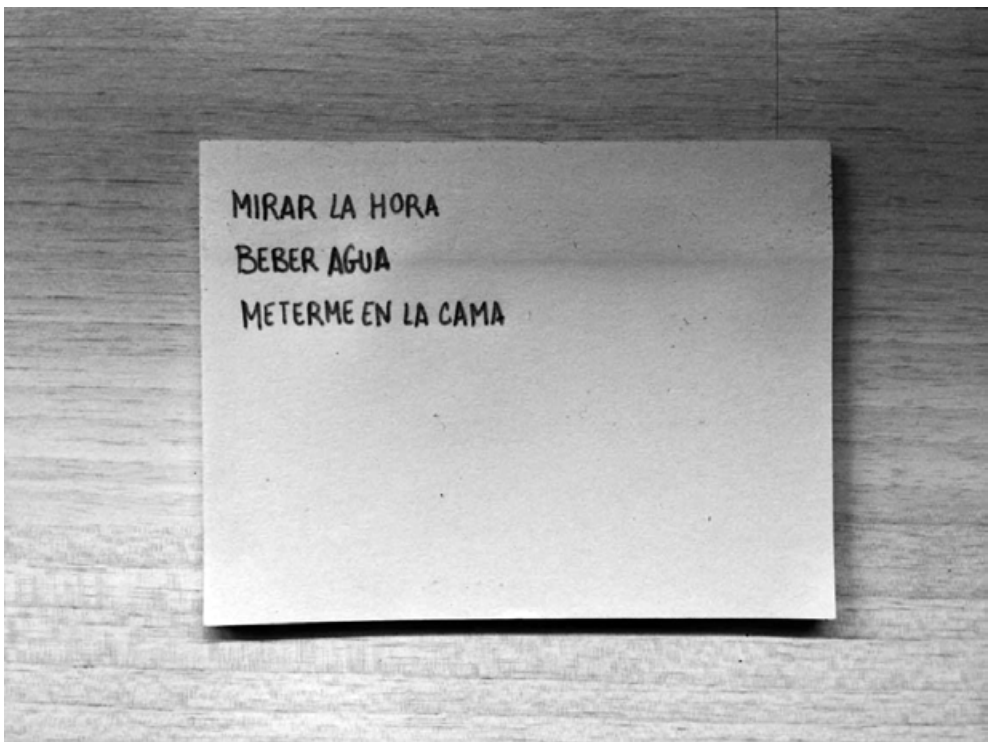 MIRAR LA HORA
BEBER AGUA
METERME EN LA CAMA